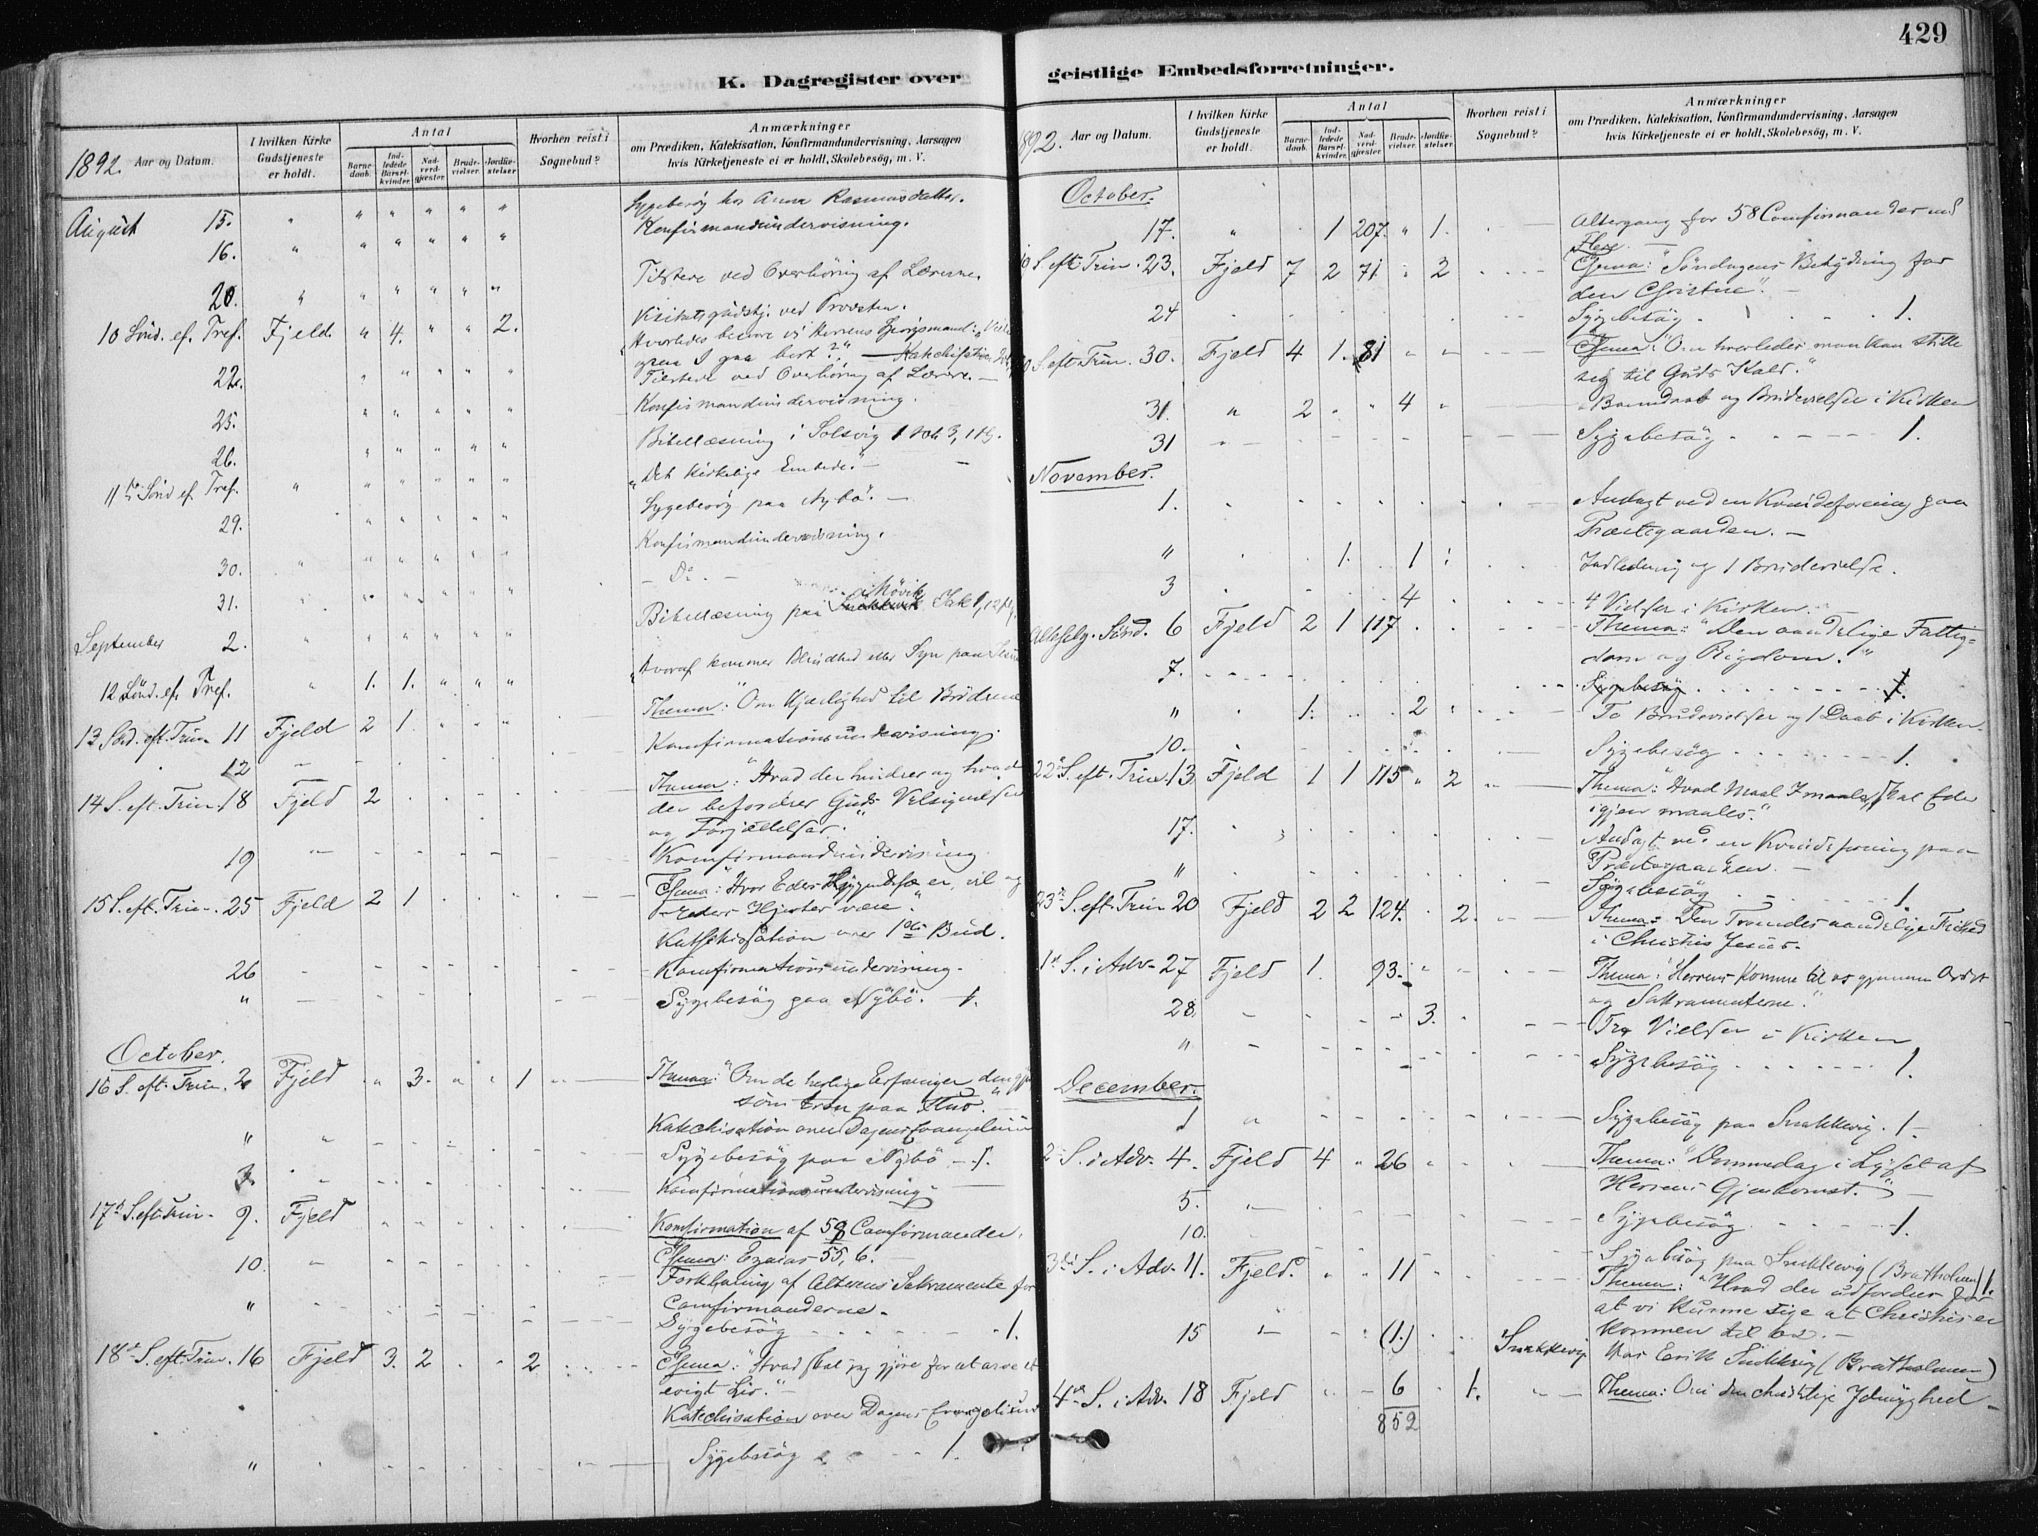 429
K. Dagregister over
geistlige Embedsforretninger.
1892. Aar og Datum.
I hvilken Kirke Gudstjeneste er holdt.
Antal
Barnedaab.
Indledede Barselkvinder.
Nadverdgjæster.
Brudevielser.
Jordfæstelser.
Hvorhen reist i Sognebud?
Anmærkninger
om Prædiken, Katekisation, Konfirmandundervisning, Aarsagen
hvis Kirketjeneste ei er holdt, Skolebesøg, m. V.
August 15. " " " " " " Sygebesøg hos Anna Rasmusdatter.
16. " " " " " " Konfirmandundervisning.
20. " " " " " " Tilstede ved Overhøring af Lærerne.
10 Sønd. ef. Tref. Fjeld " 4. " " 2. Visitatsgudstj. ved Provsten.
"Hvorledes besvare vi Herrens Spørgsmaal: "Ville
ogsaa I gaa bort?" — Katechisation
22. " " " " " Tilstede ved Overhøring af Lærere. —
25. " " " " " Konfirmandundervisning.
26. " " " " " Bibellæsning i Solsvig
11te Sønd ef. Tref. " " " " " " "Det kirkelige Embede." —
29. " " " " " Sygebesøg paa Nybø. —
30. " " " " " " Konfirmandundervisning.
31. " " " " " — Do. —
Møvik
September 2. " " " " " " Bibellæsning paa Jak 1, 12
12 Sønd. ef. Tref. " 1. 1. " " " "Hvoraf kommer Blindhed eller Syn paa Jesus
13 Sød. eft. Trin 11 Fjeld 2 1. " " " Thema: "Om Kjærlighed til Brødrene
12 — Konfirmationsundervisning.
14 S. eft. Trin. 18 Fjeld 2 Thema: "Hvad der hindrer og hvad
der befordrer Guds Velsignelse
og Forjættelser."
19 " Komfirmandundervisning
15 S. eft. Trin. 25 Fjeld 2 1 Thema: "Hvor Eders Liggendefæ er, vil og
Eders Hjerter være".
Katechisation over 1ste Bud.
26 Komfirmationsundervisning.
" Sygebesøg paa Nybø. — 1.
October.
16 S. eft. Trin. 2 Fjeld " 3. " " 1 Thema: "Om de herlige Erfaringer
som troen paa
" Katechisation over Dagens Evangelium
" Sygebesøg paa Nybø — 1.
3. Komfirmationsundervisning. —
17de S. eft. Trin. 9. Fjeld Komfirmation af 59 Comfirmander.
Thema: Ezaias 55, 6. —
10. Forklaring af Alterens Sakramente for
Comfirmanderne.
" Sygebesøg 1.
18de S. eft. Trin. 16 Fjeld 3. 2 2 Thema: "Hvad skal jeg gjøre for at arve et
evigt Liv." —
Katechisation over Dagens Evangelium
" Sygebesøg 1.
1892. Aar og Datum.
I hvilken Kirke Gudstjeneste er holdt.
Antal
Barnedaab.
Indledede Barselkvinder.
Nadverdgjæster.
Brudevielser.
Jordfæstelser.
Hvorhen reist i Sognebud?
Anmærkninger
om Prædiken, Katekisation, Konfirmandundervisning, Aarsagen
hvis Kirketjeneste ei er holdt, Skolebesøg, m. V.
October.
17. " 1 207. " 1. Altergang for 58 Comfirmander med
Flere. —
S. eft. Trin. 23. Fjeld 7 2 71 " 2 Thema: "Søndagens Betydning for
den Christne". —
24 Sygebesøg 1.
S. eft. Trin. 30. Fjeld 4 1. 81 Thema: "Om hvorledes man kan stille
sig til Guds Kald."
31. " 2 4 Barnedaab og Brudevielser i Kirken
31 Sygebesøg 1.
November.
1. Andagt ved en Kvindeforening paa
Præstegaarden. —
" 1. 1 Indledning og 1 Brudevielse.
3 4 4 Vielser i Kirken.
Allehelg. Sønd. 6 Fjeld 2 1 117 Thema: "Den aandelige Fattig=
dom og Rigdom."
7. Sygebesøg 1.
" 1. 2 To Brudevielser og 1 Daab i Kirken
10. Sygebesøg 1.
22de S. eft. Trin. 13 Fjeld 1 1 115 " 2 Thema: "Hvad Maal I maaler, skal Eder
igjen maales."
17. Andagt ved en Kvindeforening paa
Præstegaarden. —
" Sygebesøg 1.
23de S. eft. Trin 20 Fjeld 2 2 124. 2. Thema: Den Troendes aandelige Frihed
i Christus Jesus.
1ste S. i Adv. 27 Fjeld 1. 93. Thema: "Herrens Komme til os gjennem Ordet
og Sakramenterne."
28. 3. Tre Vielser i Kirken
" Sygebesøg 1.
December.
1 Sygebesøg paa Snekkevig. 1.
2 S. i Adv. 4. Fjeld 4 " 26 Thema: "Dommedag i Lyset af
Herrens Gjenkomst." —
5. Sygebesøg 1.
10. Sygebesøg paa Snekkevig (Bratholmen) 1.
3die S. i Adv. 11. Fjeld. " " 11 Thema: "Hvad der udfordres for
at vi kunne sige at Christus er
kommen til os. —
15 " (1.) Snekkevig Hos Erik Snekkevig (Bratholmen)
4de S. i Adv. 18 Fjeld 6 1. Thema: Om den christelige Ydmyghed —
852